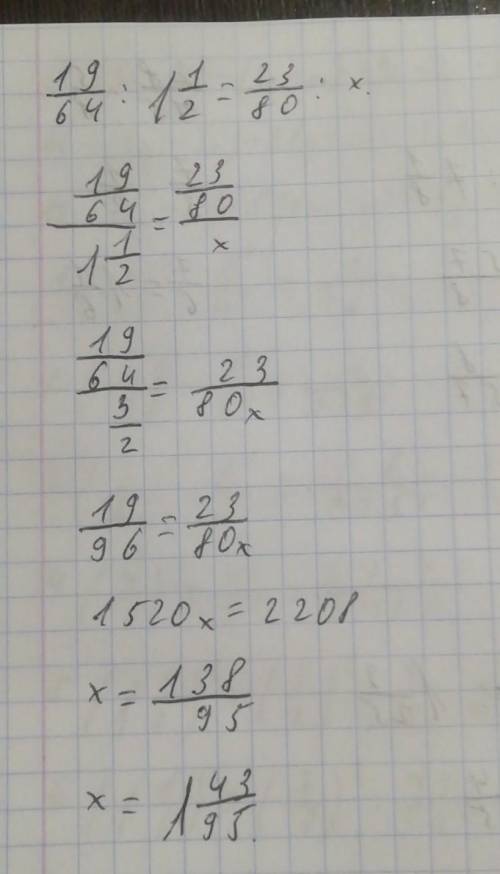 19/64 : 1 1/2 = 23/80 : x.
(19/64)/(1 1/2) = (23/80)/x
(19/64)/(3/2) = 23/80x
19/96 = 23/80x
1520x = 2208
x = 138/95
x = 1 43/95.